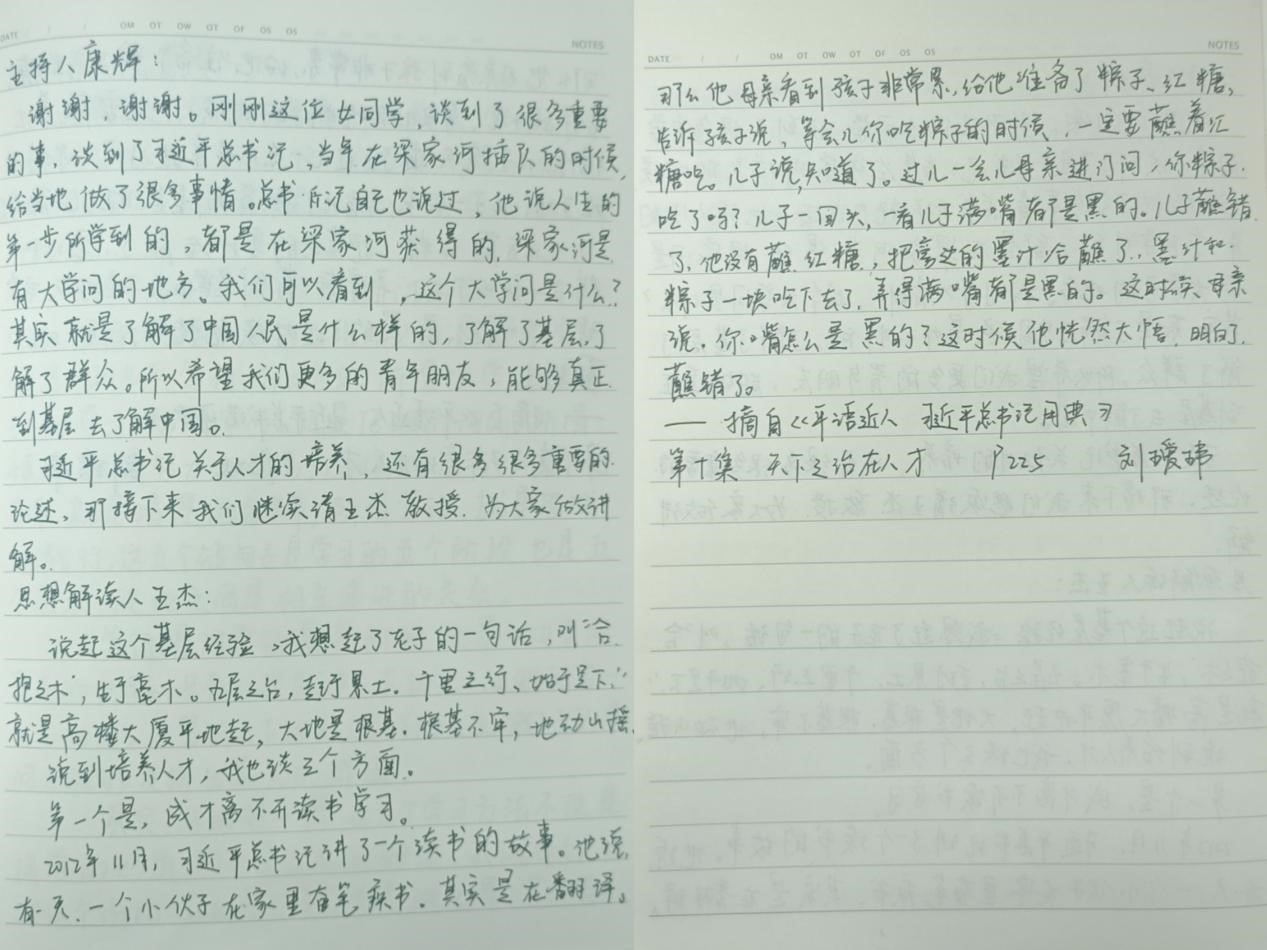 DATE / / OM OT OW OT OF OS OS NOTES
主持人康辉：
谢谢，谢谢。刚刚这位女同学，谈到了很多重要
的事，谈到了习近平总书记，当年在梁家河插队的时候，
给当地做了很多事情。总书记自己也说过，他说人生的
第一步所学到的，都是在梁家河获得的，梁家河是
有大学问的地方。我们可以看到，这个大学问是什么？
其实就是了解了中国人民是什么样的，了解了基层，了
解了群众。所以希望我们更多的青年朋友，能够真正
到基层去了解中国。
习近平总书记关于人才的培养，还有很多很多重要的
论述，那接下来我们继续请王杰教授为大家做讲
解。
思想解读人王杰：
说起这个基层经验，我想起了老子的一句话，叫“合
抱之木，生于毫木。九层之台，起于累土。千里之行、始于足下”，
就是高楼大厦平地起，大地是根基．根基不牢，地动山摇，
说到培养人才，我也谈三个方面。
第一个是，成才离不开读书学习。
2012年11月，习近平总书记讲了一个读书的故事。他说，
有一天，一个小伙子在家里奋笔疾书．其实是在翻译。
DATE / / OM OT OW OT OF OS OS NOTES
那么他母亲看到孩子非常累，给他准备了粽子、红糖，
告诉孩子说，等会儿你吃粽子的时候，一定要蘸着红
糖吃。儿子说，知道了。过儿一会儿母亲进门问，你粽子
吃了吗？儿子一回头，一看儿子满嘴都是黑的。儿子蘸错
了，他没有蘸红糖，把旁边的墨汁给蘸了，墨汁和
粽子一块吃下去了，弄得满嘴都是黑的。这时候母亲
说，你嘴怎么是黑的？这时候他恍然大悟，明白了，
蘸错了。
—— 摘自《平语近人 习近平总书记用典》
第八集 天下之治在人才 P225 刘瑷玮